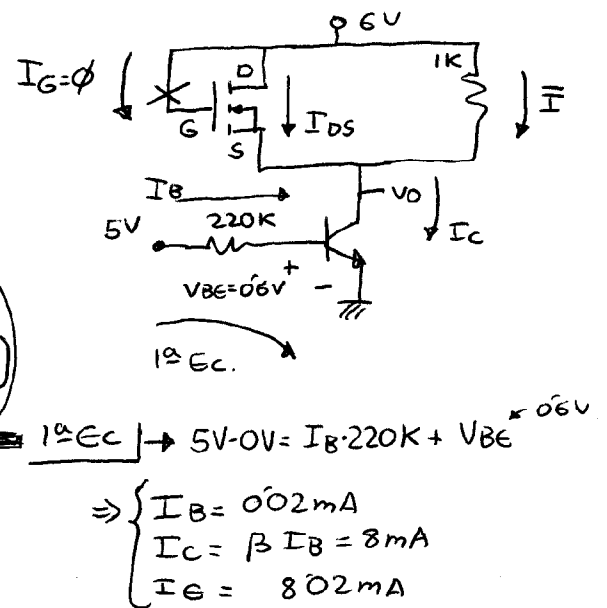 6V
1K
I_G=∅
D
G
S
I_DS
I
I_B
VO
I_C
5V
220K
VBE=0'6V
+
-
1ª Ec.
1ª Ec → 5V-0V= I_B·220K + VBE
0'6V
⇒ { I_B= 0'02mA
I_C= β I_B = 8mA
I_E= 8'02mA